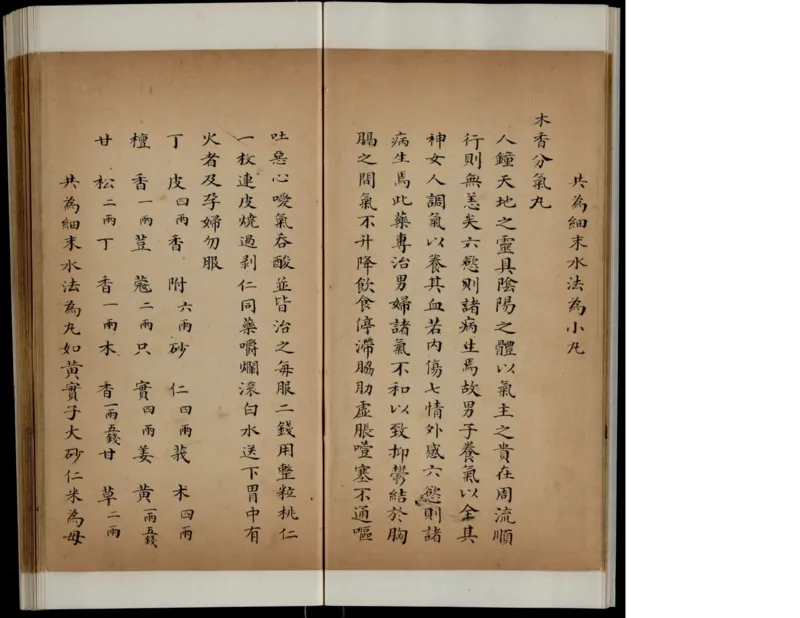 共為細末水法為小丸
木香分氣丸
人鐘天地之靈具陰陽之體以氣主之貴在周流順
行則無恙矣六慾則諸病生焉故男子養氣以全其
神女人調氣以養其血若内傷七情外感六慾則諸
病生焉此藥專治男婦諸氣不和以致抑鬱結於胸
膈之間氣不升降飲食停滯脇肋虛脹噎塞不通嘔
吐惡心噯氣吞酸並皆治之每服二錢用整粒桃仁
一枚連皮燒過剥仁同藥嚼爛滾白水送下胃中有
火者及孕婦勿服
丁皮四兩香附六兩砂仁四兩莪朮四兩
檀香一兩荳蔻二兩只實四兩姜黃一兩五錢
甘松二兩丁香一兩木香一兩五錢甘草二兩
共為細末水法為丸如黃實子大砂仁米為母